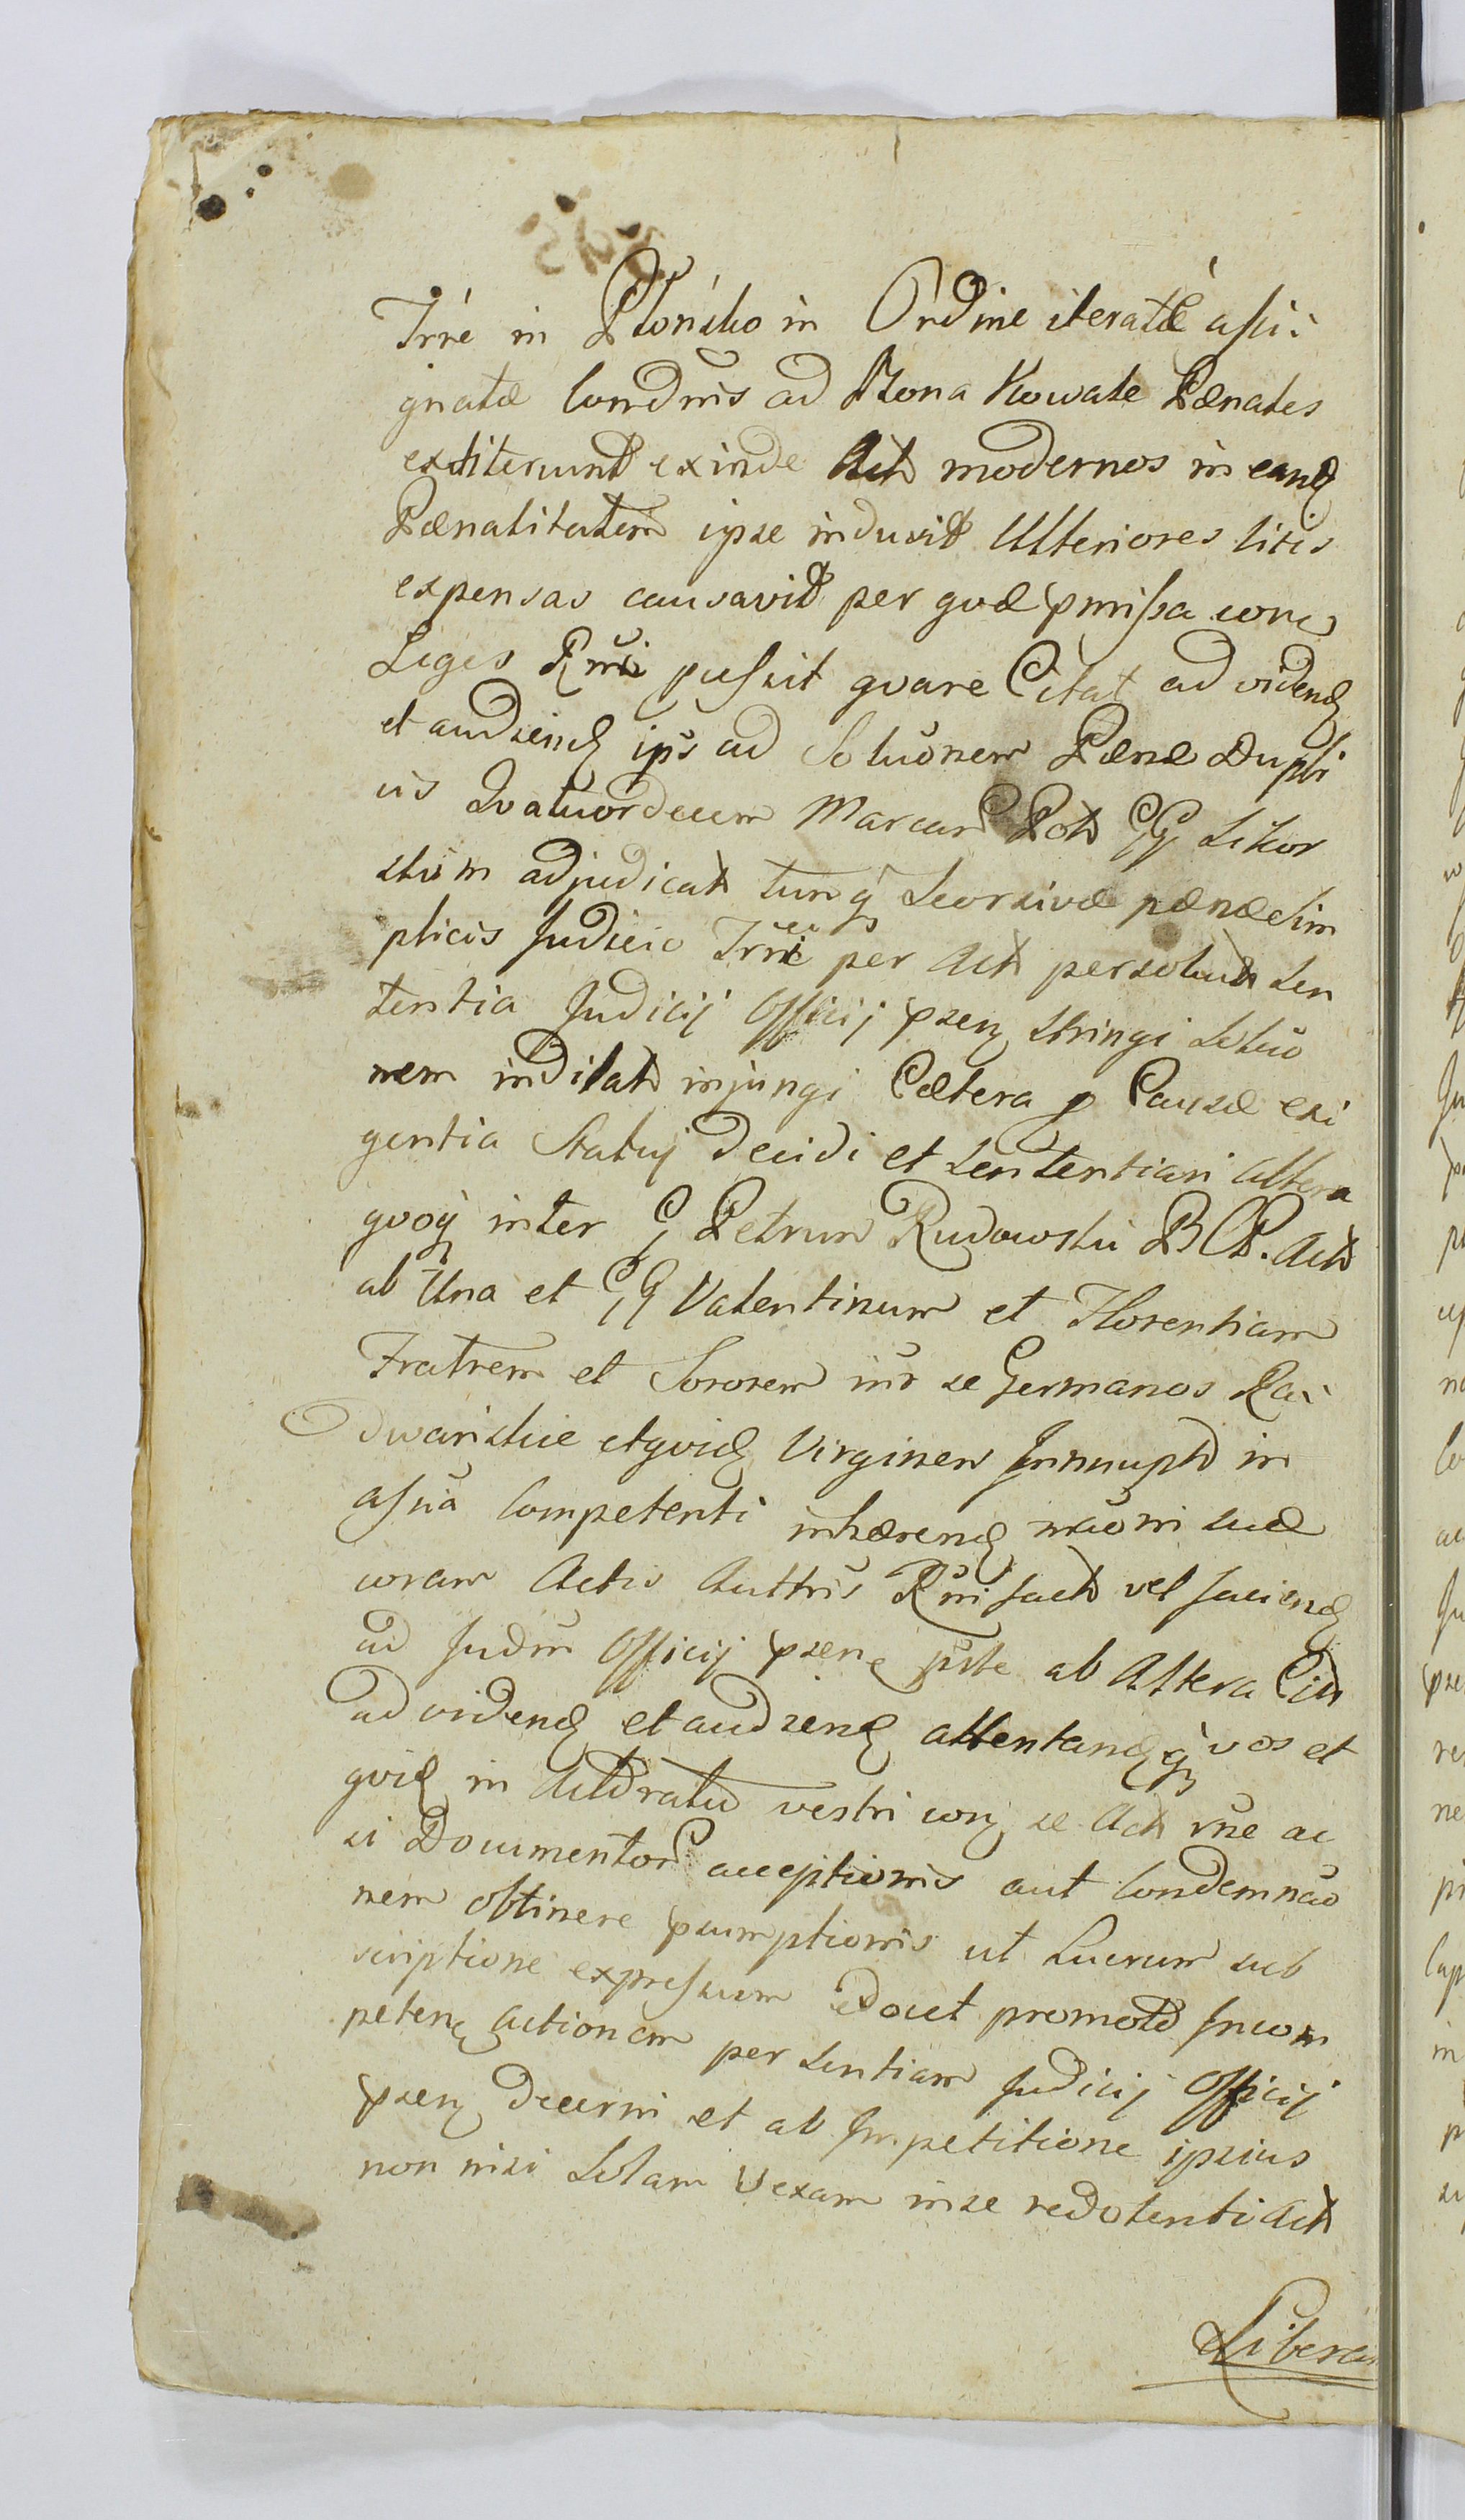 Trrê in Płońsko in Ordine iteratæ assi:
gnatæ Condnis ad Bona Kowale Pænales
extiterunt exinde Act modernos in eand
Pænalitatem ipse induxit Ulteriores litis
expensas causavit per quæ pmissa contr
Leges Rnii pessuit quare Citat ad videnḍ
et audiend ips ad Soluõnem Pænæ Dupli
cis Qvatuordecem Marcar Pol GG Sikor
skim adjudicat tum q Seorsivæ pænæ Sim
plicis Judicio Trri per Act persolut Sen
tentia Judicij Officij psen stringi Soluõ
nem indilat injungi Cætera p Causæ exi
gentia Statuj decidi et Sententiari Altera
qvoq inter G Petrum Rudowski B C P. Act
ab Una et GG Valentinum et Florentiam
Fratrem et Sororem inr se Germanos Ra:
dwanskie et qvid Virginem Innupt in
assña Competenti inhærend nuõni suæ
coram Actis Auttris Rnii fact vel faciend
ad Judm Officij psen juste ab Altera Citt
ad videnḍ et audiend attentand q vos et
qvid in Actoratu vestri contr se Act vne ac
si Documentor acceptionis aut Condemnaõ
nem obtinere psumptionis ut Lucrum sub
scriptione expressum docet promot Incom
peten actionem per Sentiam Judicij Officij
psen decerni et ab Impetitione ipsius
non nisi Solam Vexam in se redolenti Act
Liberas